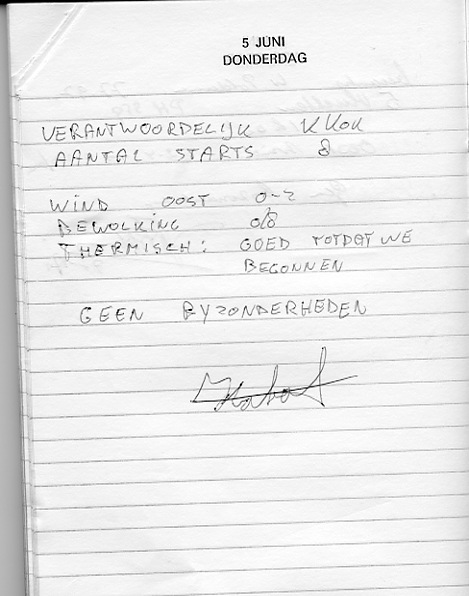 5 JUNI
DONDERDAG
VERANTWOORDELIJK K KOK
AANTAL STARTS 8
WIND OOST 0-2
BEWOLKING 0/8
THERMISCH: GOED TOTDAT WE
BEGONNEN
GEEN BYZONDERHEDEN